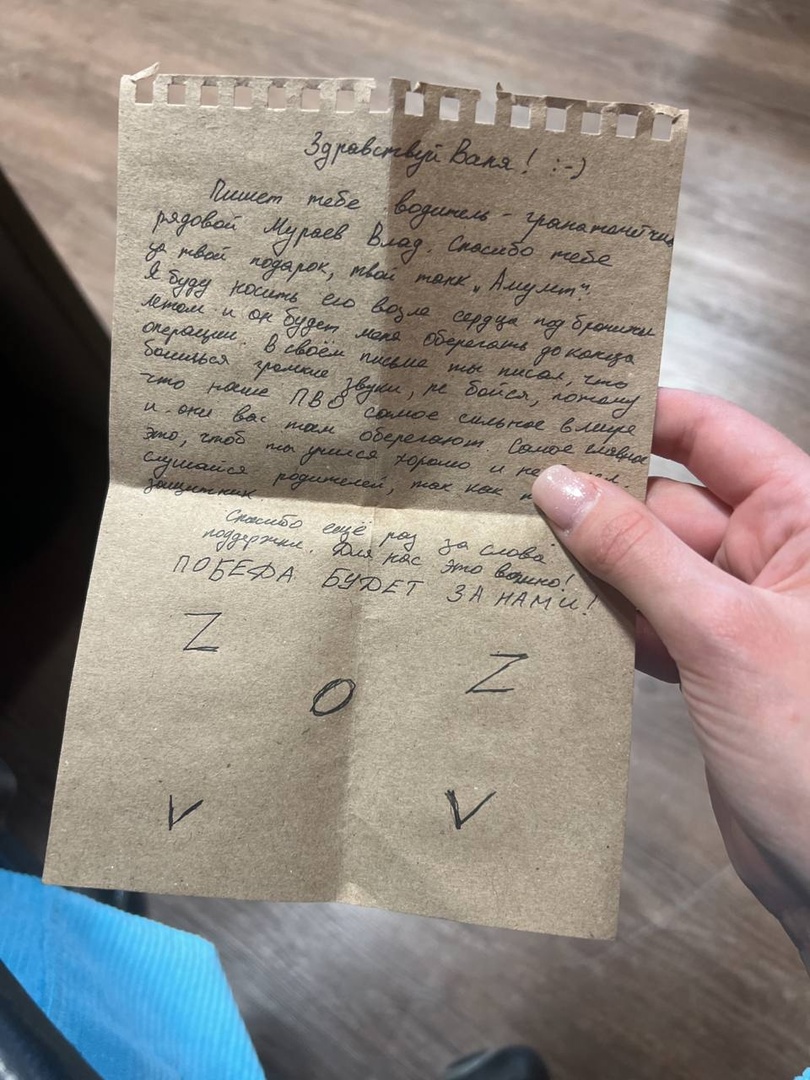 Здравствуй Ваня! :-)
Пишет тебе водитель-гранатомётчик
рядовой Мураев Влад. Спасибо тебе
за твой подарок, твой танк „Амулет".
Я буду носить его возле сердца под бронижи
летом и он будет меня оберегать до конца
операции. В своём письме ты писал, что
боишься громкие звуки, не бойся, потому
что наше ПВО самое сильное в мире
и они вас там оберегают. Самое главное
это, чтоб ты учился хорошо и не
слушайся родителей, так как
защитник
Спасибо ещё раз за слова
поддержки. Для нас это важно!
ПОБЕДА БУДЕТ ЗА НАМИ!
Z
Z
O
V
V